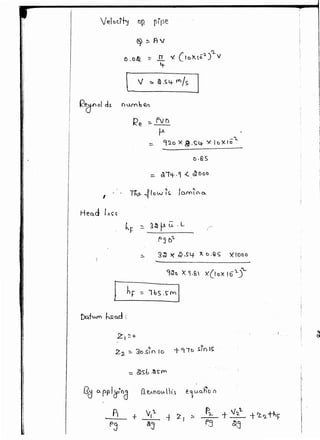 Velocity op pipe
Q = AV
0.02 = π/4 × (10×10⁻²)² V
V = 2.54 m/s
Reynolds number
Re = ρVD/μ
= 920 × 2.54 × 10×10⁻² / 0.85
= 274.9 < 2000
∴ The flow is lamina
Head loss
hF = 32 μ ū · L / ρg D²
= 32 × 2.54 × 0.85 × 1000 / 920 × 9.81 × (10×10⁻²)²
hF = 765.5m
Datum head :
Z₁ = 0
Z₂ = 30 sin 10 + 970 sin 15
= 256.2m
By applying Bernoulli's equation
P₁/ρg + V₁²/2g + Z₁ = P₂/ρg + V₂²/2g + Z₂ + hF